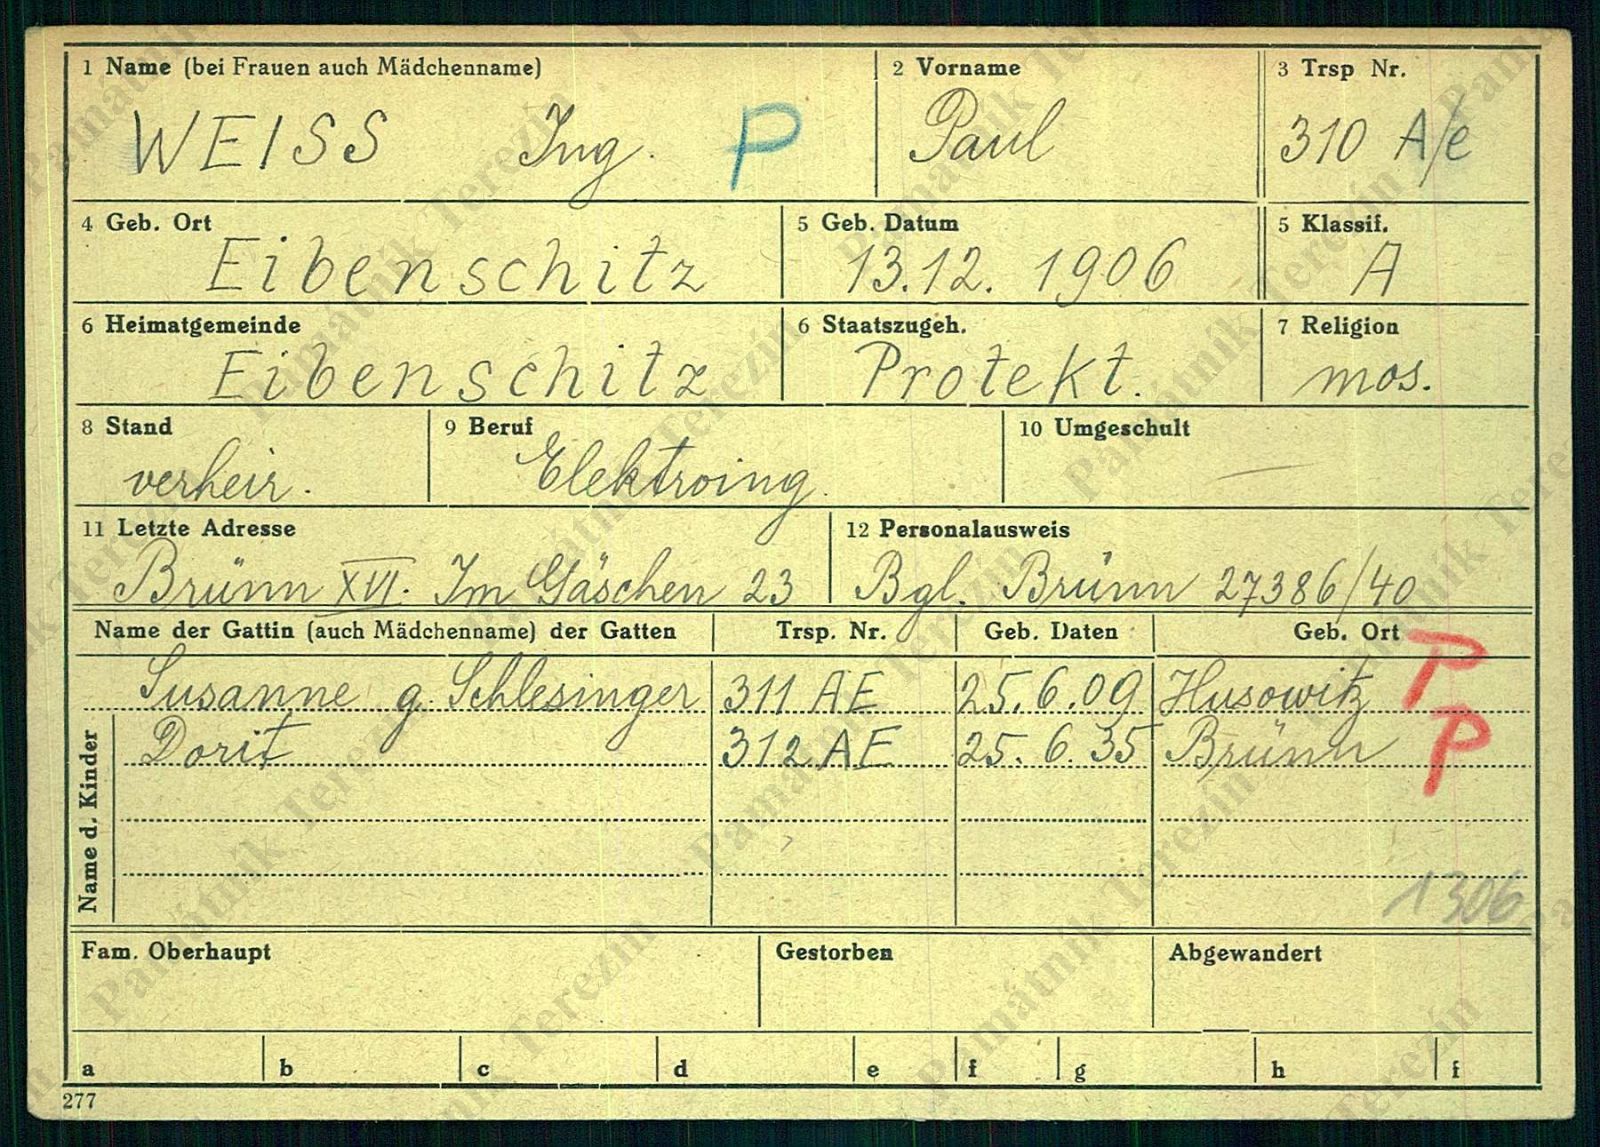 1 Name (bei Frauen auch Mädchenname)
WEISS Ing. P
2 Vorname
Paul
3 Trsp Nr.
310 A/e
4 Geb. Ort
Eibenschitz
5 Geb. Datum
13.12. 1906
5 Klassif.
A
6 Heimatgemeinde
Eibenschitz
6 Staatszugeh.
Protekt.
7 Religion
mos.
8 Stand
verheir.
9 Beruf
Elektroing.
10 Umgeschult
—
11 Letzte Adresse
Brünn XVI. Im Gäschen 23
12 Personalausweis
Bgl. Brünn 27386/40
Name der Gattin (auch Mädchenname) der Gatten Trsp. Nr. Geb. Daten Geb. Ort
Susanne g. Schlesinger 311 AE 25.6.09 Husowitz P
Name d. Kinder
Dorit 312 AE 25.6.35 Brünn P
1306
Fam. Oberhaupt Gestorben Abgewandert
a b c d e f g h i
277
Památník Terezín